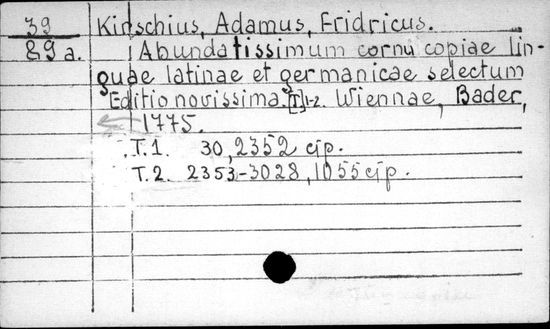 39 Kirschius, Adamus, Fridricus.
89 a. Abundatissimum cornu copiae lin-
guae latinae et germanicae selectum
Editio novissima. [T.] 1-2. Wiennae, Bader,
1775.
T. 1. 30, 2352 cip.
T. 2. 2353-3028, 1055 cip.